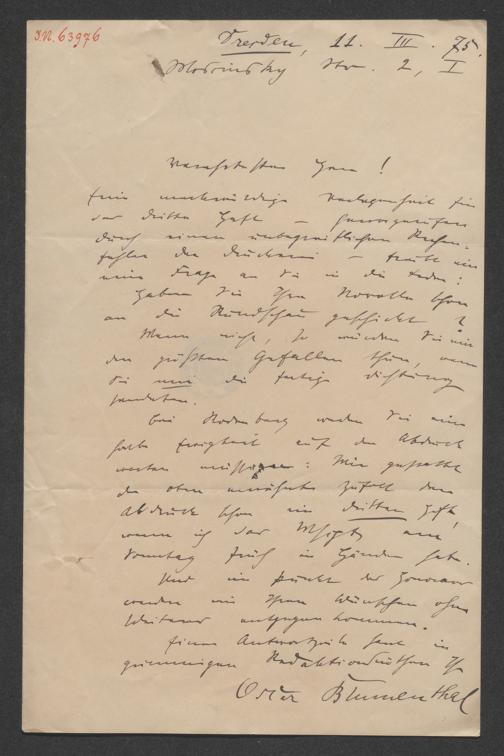 J.N. 63976
Dresden, 11. III. 75.
Mosczinsky Str. 2, I
Verehrtester Herr!
Eine merkwürdige Verlegenheit für
das dritte Heft – hervorgerufen
durch einen unbegreiflichen Rechen-
fehler der Druckerei – drückt mir
eine Frage an Sie in die Feder:
Haben Sie Ihre Novelle schon
an die Rundschau geschickt?
Wenn nicht, so würden Sie mir
den größten Gefallen thun, wenn
Sie mir die fertige Dichtung
sendeten.
Bei Rodenberg werden Sie eine
halbe Ewigkeit auf den Abdruck
warten müssen: Mir gestattet
der oben erwähnte Zufall den
Abdruck schon im dritten Heft,
wenn ich das Mscpt. am
Sonntag früh in Händen habe.
Und im Punkt der Honorare
werden wir Ihren Wünschen ohne
Weiteres entgegenkommen.
Einer Antwortzeile harrt in
grimmigen Redaktionsnöthen Ihr
Oscar Blumenthal